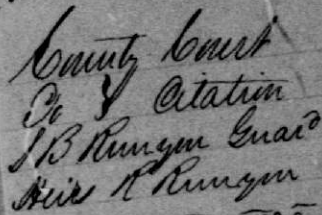 County Court
To } Citation
S B Runyon Guard
Heirs R Runyon